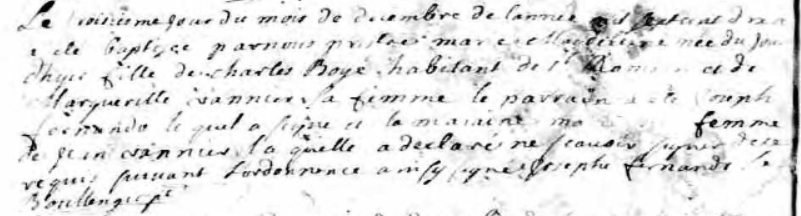 Le troisieme jour du mois de decembre de lannee mil sept cent
a ete baptisee par nous prestre marie Magdelene née du jou
dhyer fille de charles Boye habitant de st Romain et de
Margueritte vannier sa femme le parrain a ete Joseph
fernando lequel a signe et la maraine femme
de Jean vannier laquelle a declaré ne scavoir signer de ce
requis suivant Lordonnence ainsy signe Joseph fernando Le
Boullenger ptre